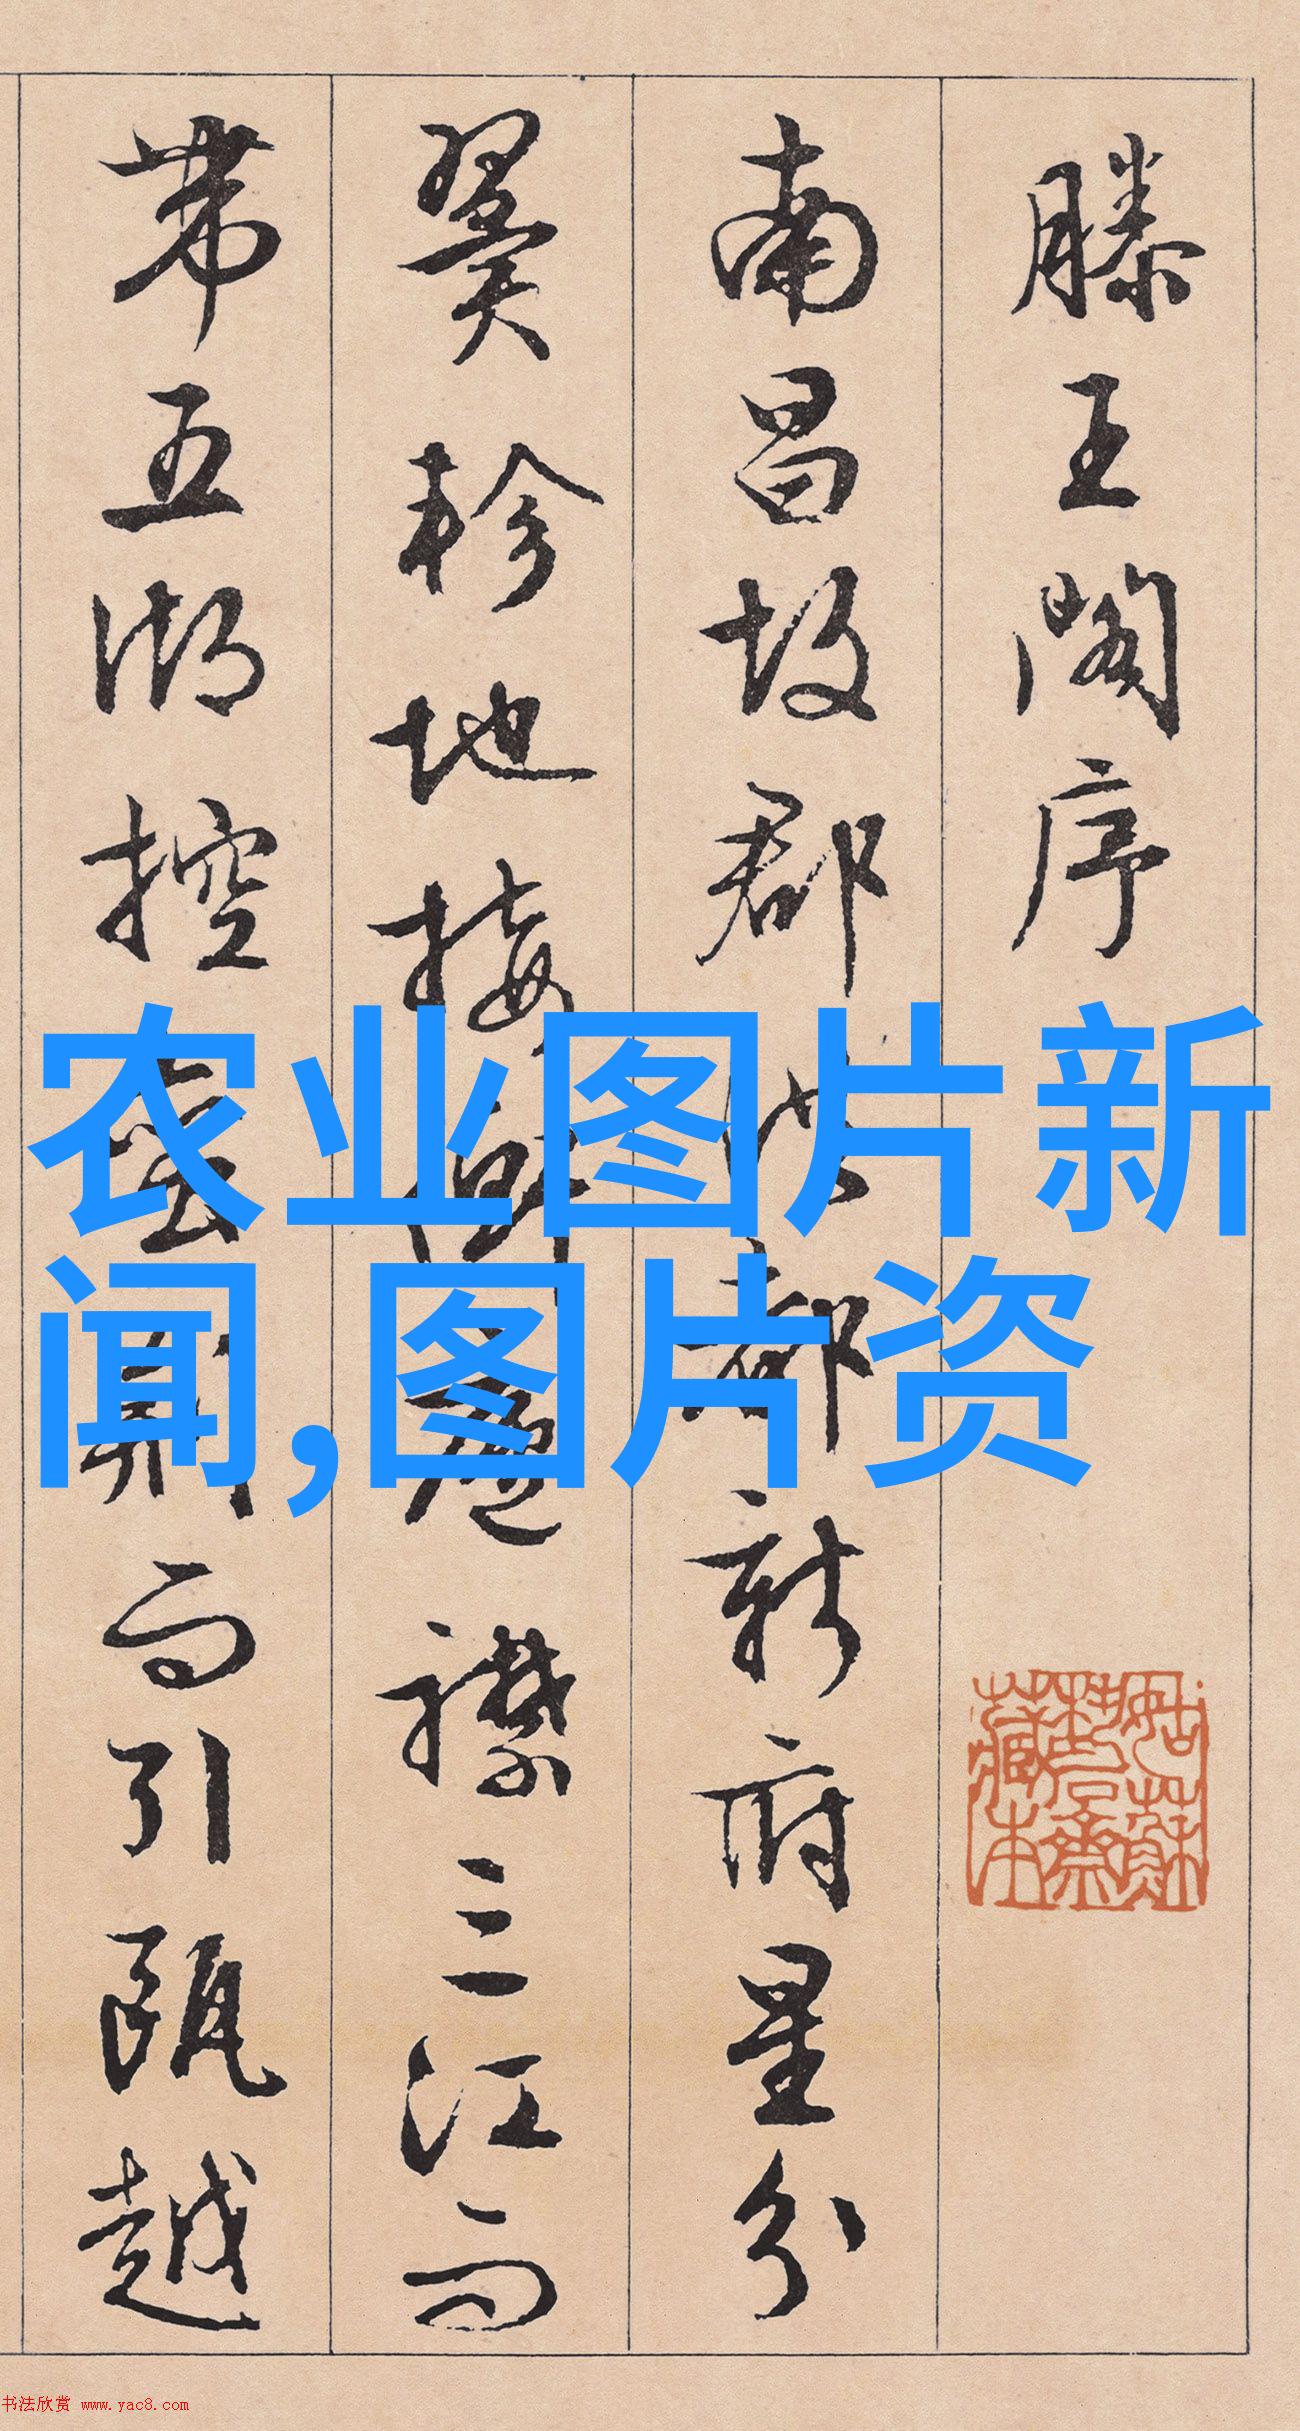 滕王閣序
南昌故郡洪都新府星分
翼軫地接衡廬襟三江而
帶五湖控蠻荆而引甌越
农业图片新
闻,图片资
书法欣赏 www.yac8.com